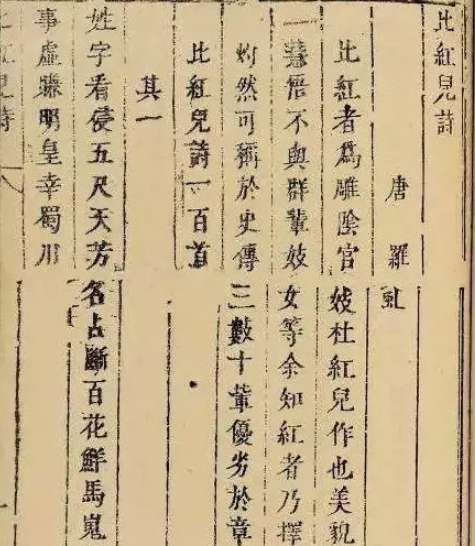 比紅兒詩
唐羅虬
比紅者爲雕陰官妓杜紅兒作也美貌
慧悟不與群輩妓女等余知紅者乃擇
灼然可稱於史傳三數十輩優劣於章
比紅兒詩一百首
其一
姓字看侵五尺天芳名占斷百花鮮馬嵬
事虛賺明皇幸蜀川
紅兒詩